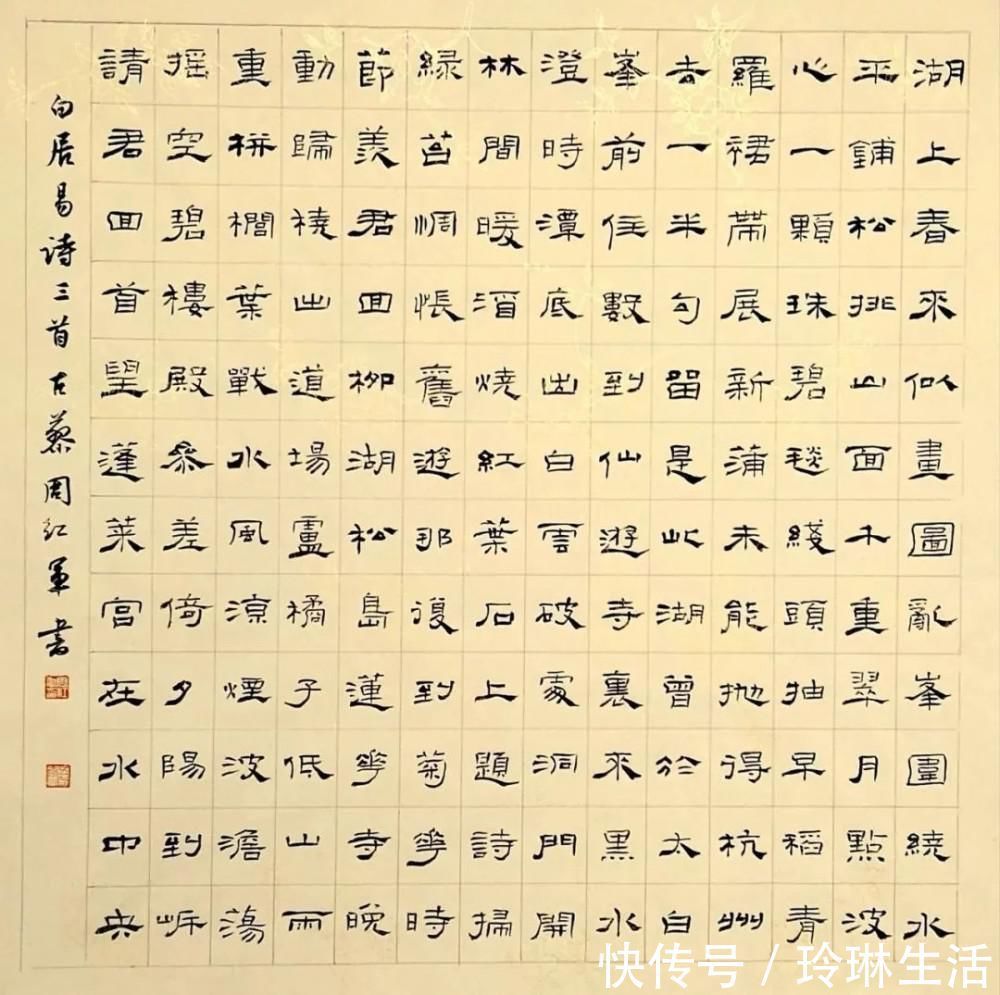 湖上春來似畫圖亂峯圍繞水
平鋪松排山面千重翠月點波
心一顆珠碧毯綫頭抽早稻青
羅裙帶展新蒲未能抛得杭州
去一半句留是此湖曾於太白
峯前住數到仙遊寺裏來黑水
澄時潭底出白雲破處洞門開
林間暖酒燒紅葉石上題詩掃
緑苔惆悵舊遊那復到菊花時
節羨君回柳湖松島蓮花寺晚
動歸橈出道場盧橘子低山雨
重栟櫚葉戰水風涼煙波澹蕩
搖空碧樓殿參差倚夕陽到岸
請君回首望蓬萊宮在水中央
白居易诗三首古蔡周红軍書
快传号/玲琳生活